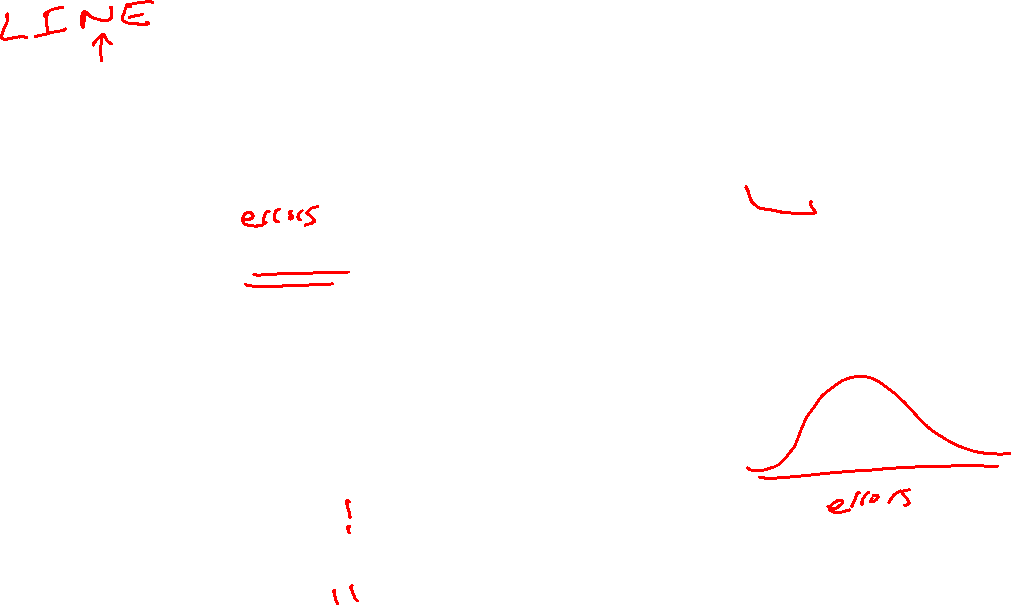 LINE
errors
errors
!
"